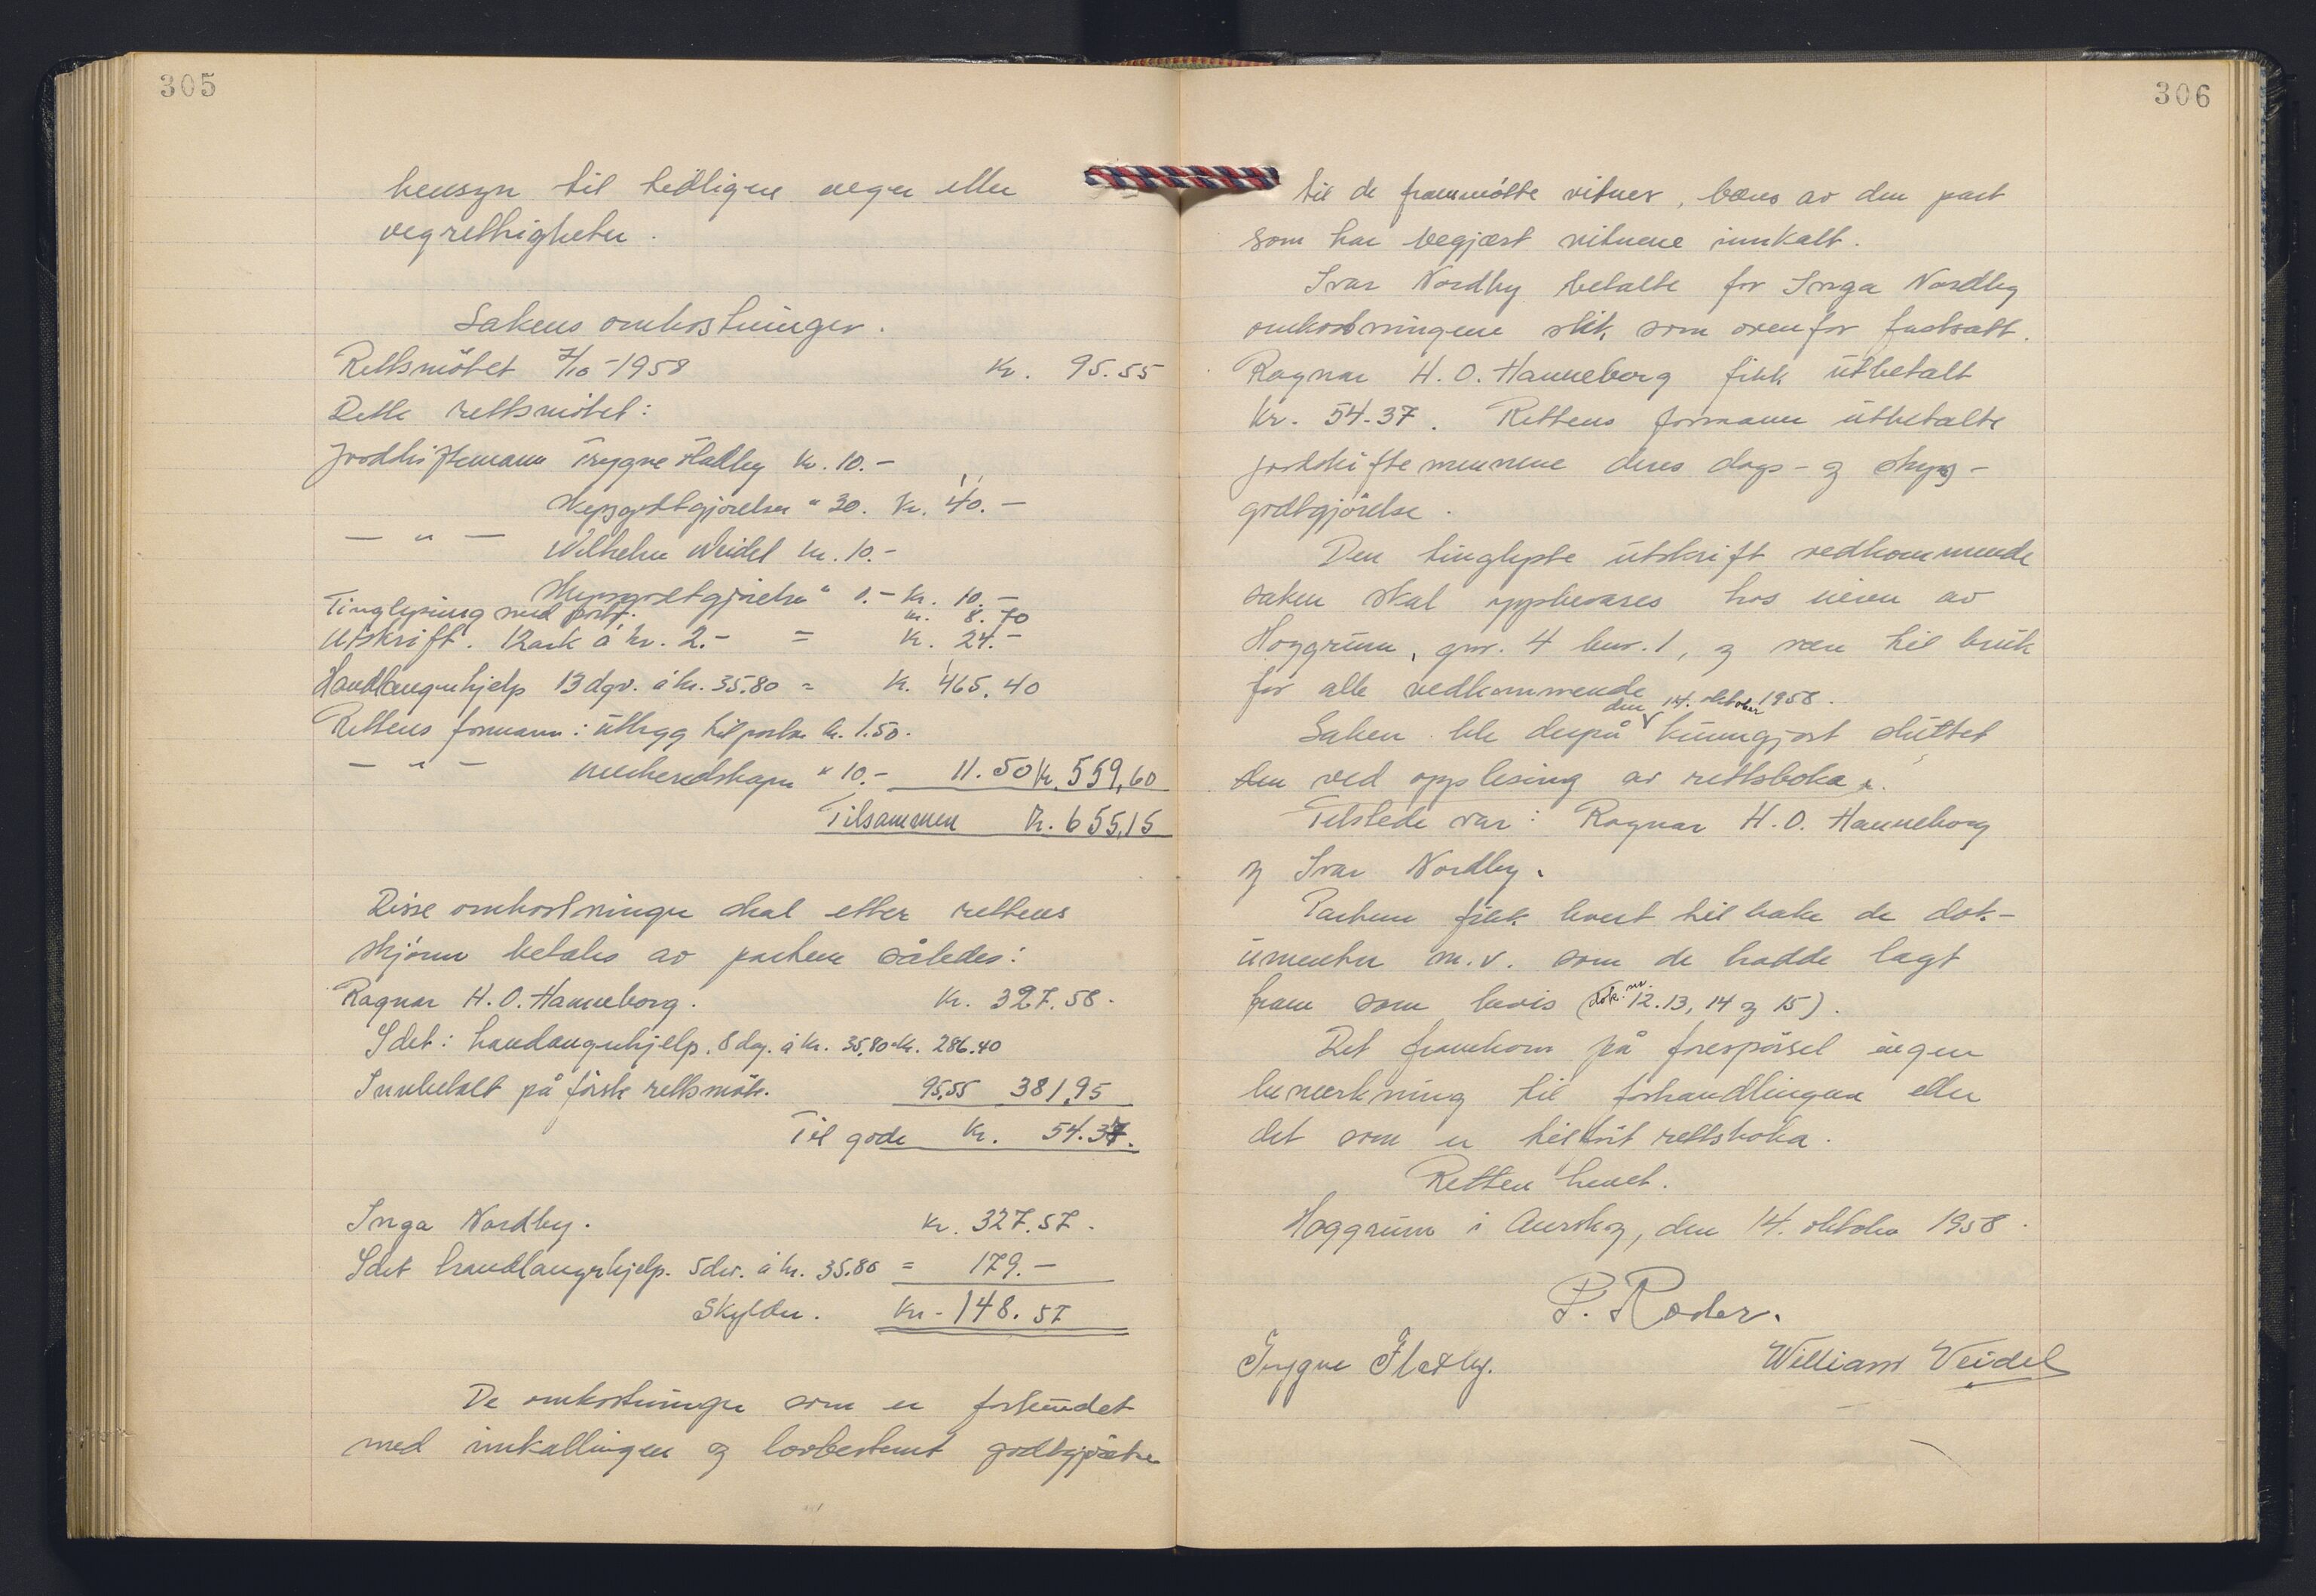 305
hensyn til tidligere veger eller
vegrettigheter.
Sakens omkostninger.
Rettsmötet 7/10-1958 Kr. 95.55
Dette rettsmötet:
Jordskiftemann Trygve Flatby Kr. 10.-
Skyssgodtgjörelse " 30. Kr. 40.-
- " - Wilhelm Weidel Kr. 10.-
Skyssgodtgjörelse " 0.- Kr. 10.-
Tinglysing med port. Kr. 8.70
Utskrift. 12 ark à kr. 2.- = Kr. 24.-
Handlangerhjelp 13 dgv. à kr. 35.80 = Kr. 465.40
Rettens formann: utlegg til porto kr. 1.50.
- " - " 10.- 11.50 Kr. 559,60
Tilsammen Kr. 655,15
Disse omkostninger skal etter rettens
skjönn betales av partene således:
Ragnar H. O. Hanneborg. Kr. 327.58.
I det: handangerhjelp. 8 dag. à kr. 35,80 = kr. 286.40
Innbetalt på förste rettsmöte. 95,55 381,95
Til gode Kr. 54.37.
Inga Nordby. Kr. 327.57.
I det handlangerhjelp. 5 dv. à kr. 35.80 = 179.-
Skylder. Kr. 148.57
De omkostninger som er forbundet
med innkallingen og lovbestemt godtgjörelse
306
til de frammötte vitner, bæres av den part
som har begjært vitnene innkalt.
Ivar Nordby betalte for Inga Nordby
omkostningene slik som ovenfor fastsatt.
Ragnar H. O. Hanneborg fikk utbetalt
Kr. 54.37. Rettens formann utbetalte
jordskiftemennene deres dags- og skyss-
godtgjörelse.
Den tinglyste utskrift vedkommende
saken skal oppbevares hos eieren av
Hoggrunn, gnr. 4 bnr. 1, og være til bruk
for alle vedkommende
den 14. oktober 1958.
Saken ble derpå kunngjort sluttet
den ved opplesing av rettsboka.
Tilstede var: Ragnar H. O. Hanneborg
og Ivar Nordby.
Partene fikk levert tilbake de dok-
umenter m.v. som de hadde lagt
fram som bevis (dok. nr. 12.13, 14 og 15).
Det framkom på forespörsel ingen
bemerkning til forhandlingene eller
det som er tilfört rettsboka.
Retten hevet.
Hoggrunn i Aurskog, den 14. oktober 1958.
P. Roder.
Trygve Flatby. William Veidel